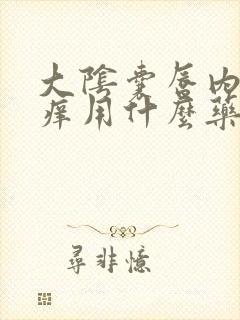 大陰囊唇內
痒用什麼藥
尋非憶